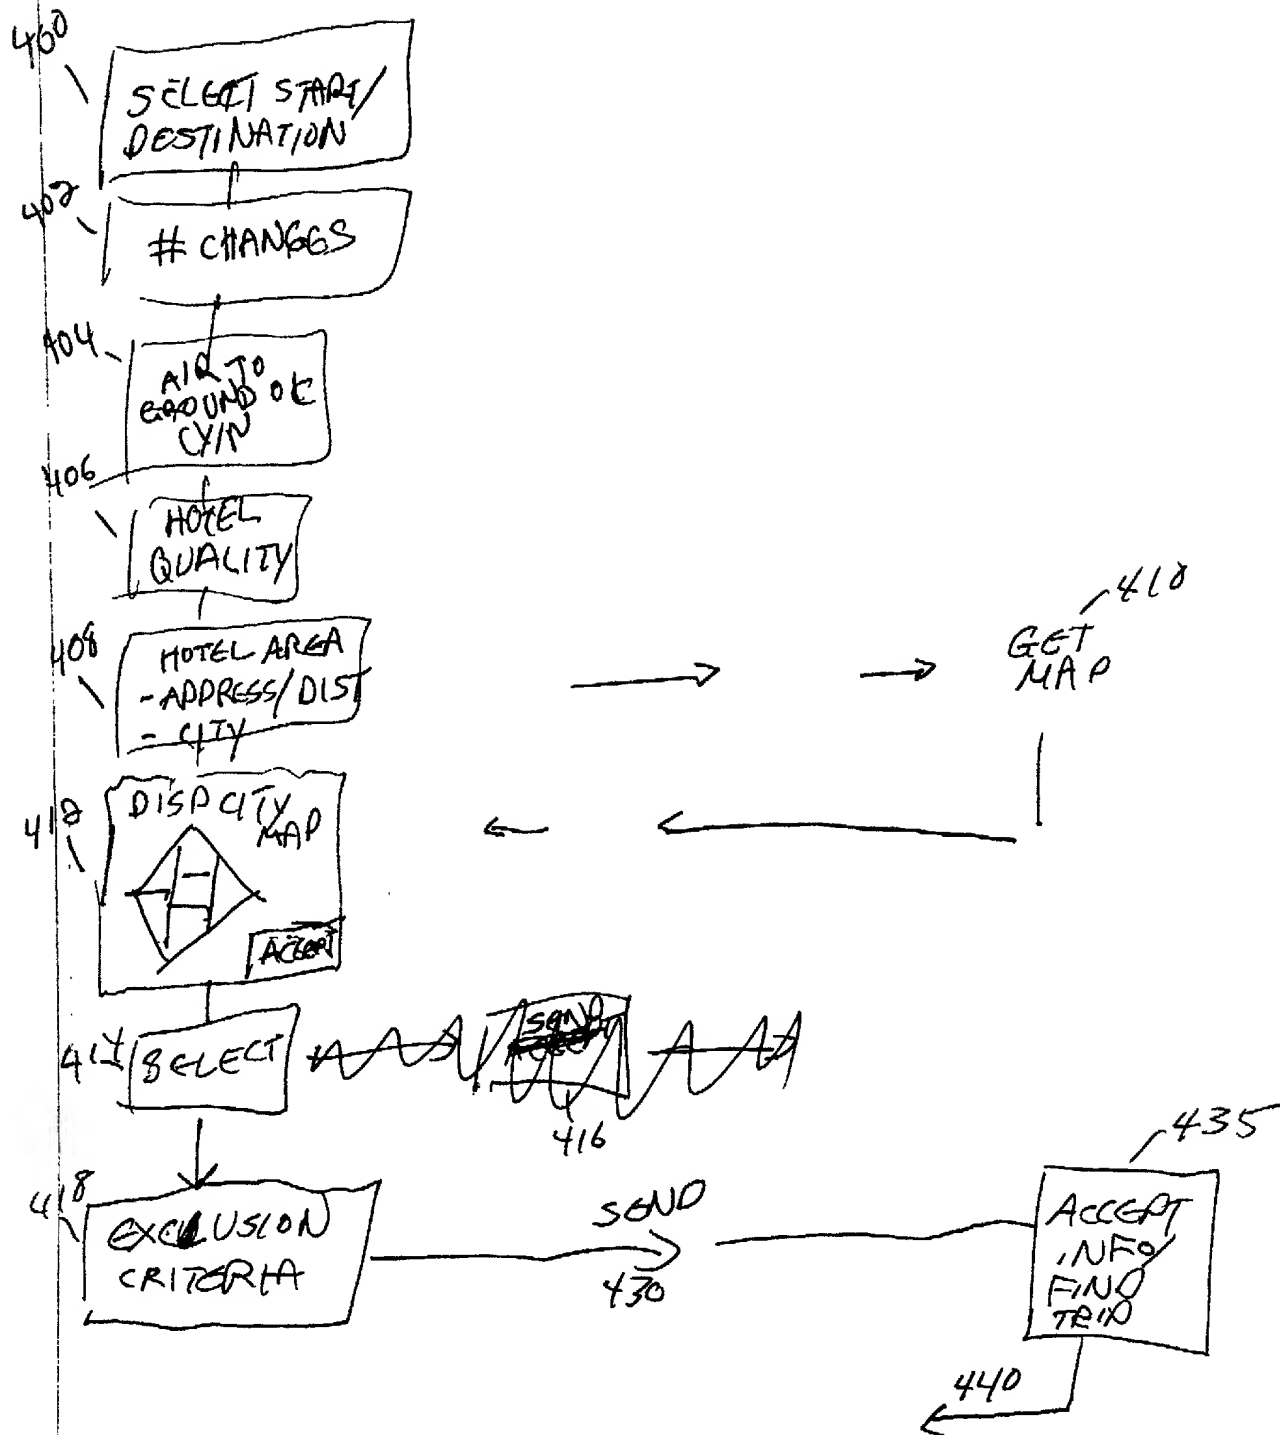 400
SELECT START/
DESTINATION
402
# CHANGES
404
AIR TO
GROUND OK
(Y/N
406
HOTEL
QUALITY
408
HOTEL AREA
- ADDRESS/DIST
- CITY
410
GET
MAP
412
DISP CITY
MAP
ACCEPT
414
SELECT
SEND
416
418
EXCLUSION
CRITERIA
SEND
430
435
ACCEPT
INFO/
FIND
TRIP
440